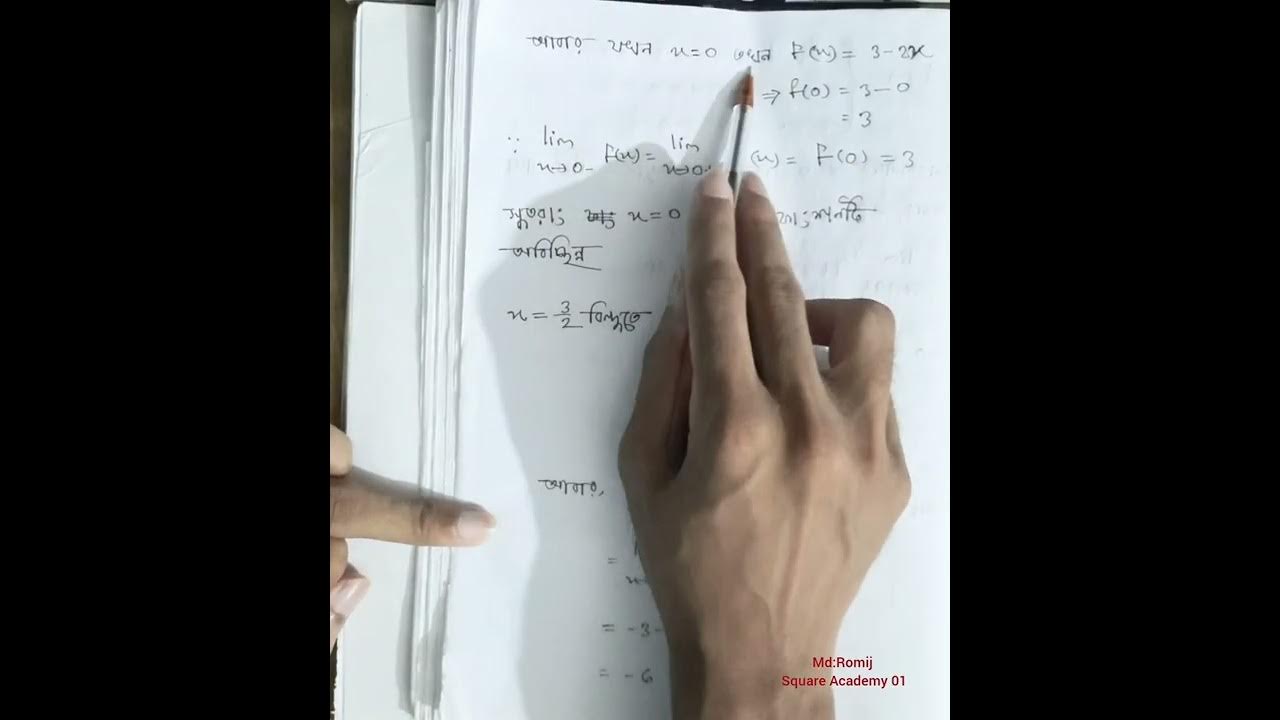 আবার যখন x=0 তখন f(x) = 3-2x
⇒ f(0) = 3-0
= 3
∵ lim x→0- f(x) = lim x→0 (x) = f(0) = 3
সুতরাং x=0 ফাংশনটি
অবিচ্ছিন্ন
x = 3/2 বিন্দুতে
আবার,
=
= -3-
= -6
Md:Romij
Square Academy 01